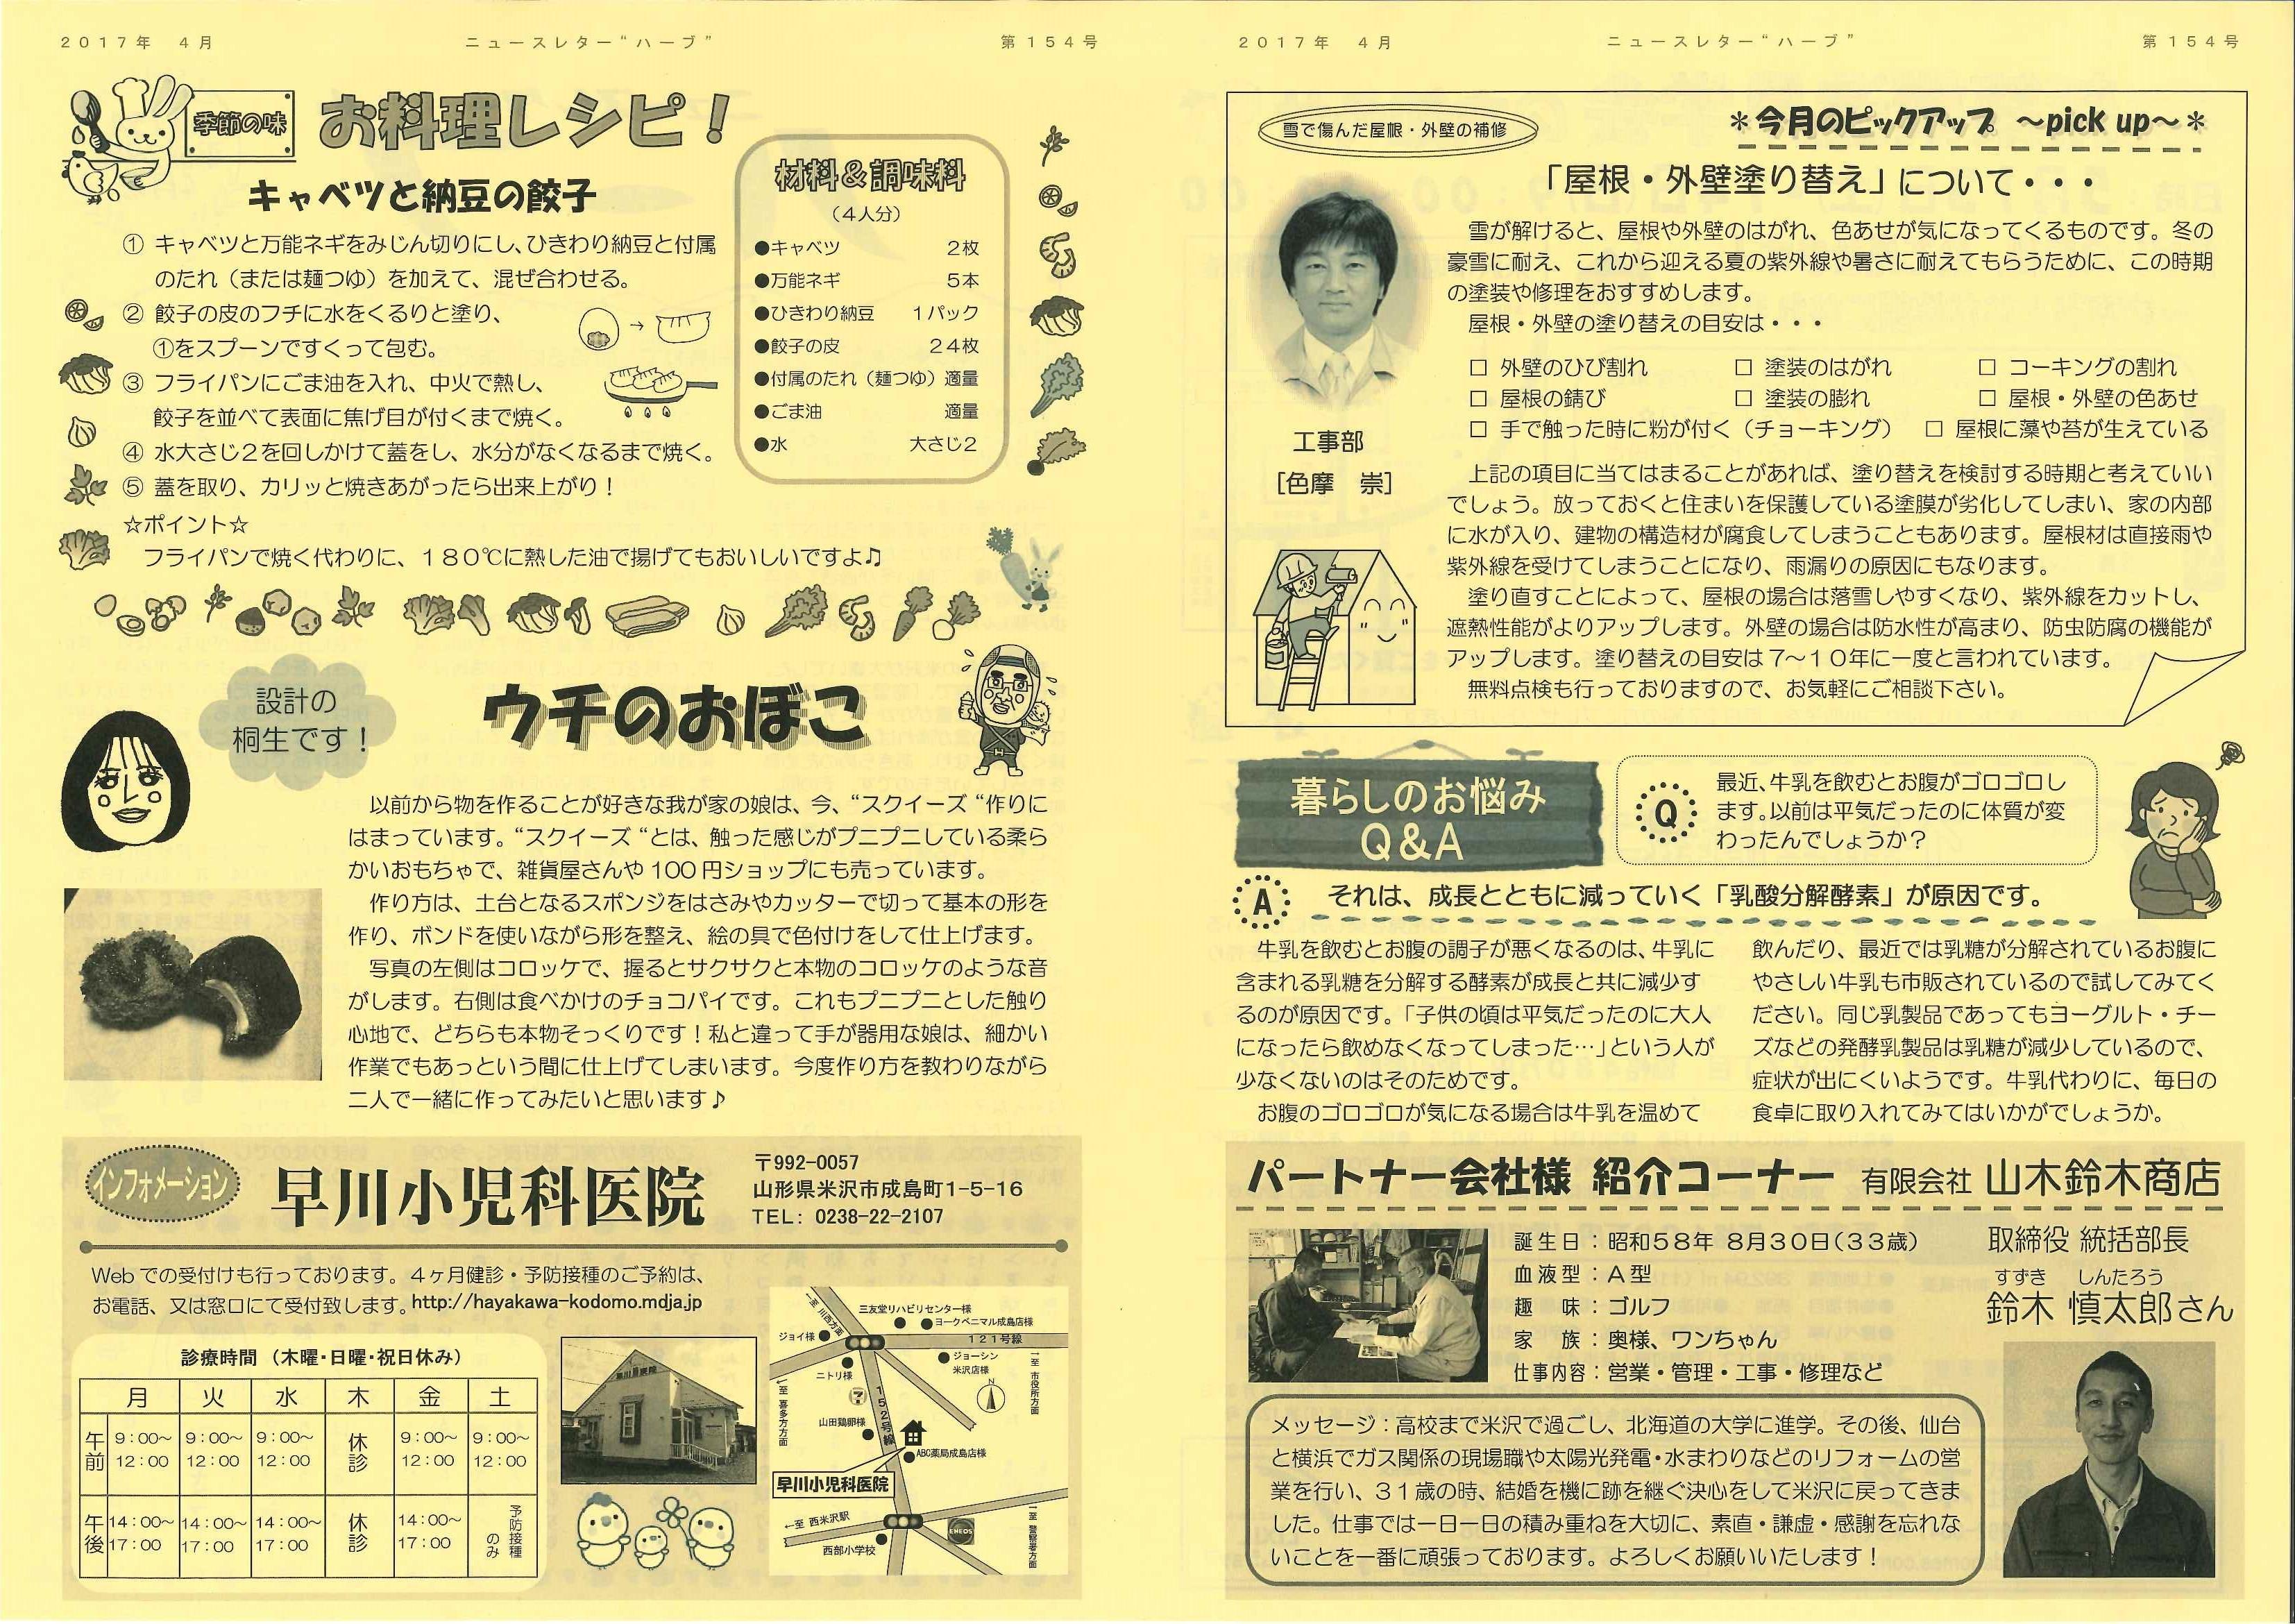 2017年 4月
ニュースレター“ハーブ”
第154号
季節の味
お料理レシピ！
キャベツと納豆の餃子
① キャベツと万能ネギをみじん切りにし、ひきわり納豆と付属
のたれ（または麺つゆ）を加えて、混ぜ合わせる。
② 餃子の皮のフチに水をくるりと塗り、
①をスプーンですくって包む。
③ フライパンにごま油を入れ、中火で熱し、
餃子を並べて表面に焦げ目が付くまで焼く。
④ 水大さじ２を回しかけて蓋をし、水分がなくなるまで焼く。
⑤ 蓋を取り、カリッと焼きあがったら出来上がり！
☆ポイント☆
フライパンで焼く代わりに、１８０℃に熱した油で揚げてもおいしいですよ♫
材料＆調味料
（４人分）
●キャベツ 2枚
●万能ネギ 5本
●ひきわり納豆 1パック
●餃子の皮 24枚
●付属のたれ（麺つゆ）適量
●ごま油 適量
●水 大さじ2
設計の
桐生です！
ウチのおぼこ
以前から物を作ることが好きな我が家の娘は、今、“スクイーズ“作りに
はまっています。“スクイーズ“とは、触った感じがプニプニしている柔ら
かいおもちゃで、雑貨屋さんや 100 円ショップにも売っています。
作り方は、土台となるスポンジをはさみやカッターで切って基本の形を
作り、ボンドを使いながら形を整え、絵の具で色付けをして仕上げます。
写真の左側はコロッケで、握るとサクサクと本物のコロッケのような音
がします。右側は食べかけのチョコパイです。これもプニプニとした触り
心地で、どちらも本物そっくりです！私と違って手が器用な娘は、細かい
作業でもあっという間に仕上げてしまいます。今度作り方を教わりながら
二人で一緒に作ってみたいと思います♪
インフォメーション
早川小児科医院
〒992-0057
山形県米沢市成島町1-5-16
TEL: 0238-22-2107
Web での受付けも行っております。４ヶ月健診・予防接種のご予約は、
お電話、又は窓口にて受付致します。http://hayakawa-kodomo.mdja.jp
診療時間 （木曜・日曜・祝日休み）
月 火 水 木 金 土
午前 9:00～12:00 9:00～12:00 9:00～12:00 休診 9:00～12:00 9:00～12:00
午後 14:00～17:00 14:00～17:00 14:00～17:00 休診 14:00～17:00 予防接種のみ
早川小児科医院
←至 川西方面
三友堂リハビリセンター様
ヨークベニマル成島店様
ジョイ様
121号線
ジョーシン
米沢店様
ニトリ様
←至 喜多方方面
152号線
山田鶏卵様
N
→至 市役所方面
ABC薬局成島店様
早川小児科医院
←至 西米沢駅
ENEOS
西部小学校
→至 警察署方面
2017年 4月
ニュースレター“ハーブ”
第154号
雪で傷んだ屋根・外壁の補修
＊今月のピックアップ ～pick up～＊
「屋根・外壁塗り替え」について・・・
雪が解けると、屋根や外壁のはがれ、色あせが気になってくるものです。冬の
豪雪に耐え、これから迎える夏の紫外線や暑さに耐えてもらうために、この時期
の塗装や修理をおすすめします。
屋根・外壁の塗り替えの目安は・・・
□ 外壁のひび割れ □ 塗装のはがれ □ コーキングの割れ
□ 屋根の錆び □ 塗装の膨れ □ 屋根・外壁の色あせ
□ 手で触った時に粉が付く（チョーキング） □ 屋根に藻や苔が生えている
工事部
［色摩 崇］
上記の項目に当てはまることがあれば、塗り替えを検討する時期と考えていい
でしょう。放っておくと住まいを保護している塗膜が劣化してしまい、家の内部
に水が入り、建物の構造材が腐食してしまうこともあります。屋根材は直接雨や
紫外線を受けてしまうことになり、雨漏りの原因にもなります。
塗り直すことによって、屋根の場合は落雪しやすくなり、紫外線をカットし、
遮熱性能がよりアップします。外壁の場合は防水性が高まり、防虫防腐の機能が
アップします。塗り替えの目安は７～１０年に一度と言われています。
無料点検も行っておりますので、お気軽にご相談下さい。
暮らしのお悩み
Q&A
Q
最近、牛乳を飲むとお腹がゴロゴロし
ます。以前は平気だったのに体質が変
わったんでしょうか？
A それは、成長とともに減っていく「乳酸分解酵素」が原因です。
牛乳を飲むとお腹の調子が悪くなるのは、牛乳に
含まれる乳糖を分解する酵素が成長と共に減少す
るのが原因です。「子供の頃は平気だったのに大人
になったら飲めなくなってしまった…」という人が
少なくないのはそのためです。
お腹のゴロゴロが気になる場合は牛乳を温めて
飲んだり、最近では乳糖が分解されているお腹に
やさしい牛乳も市販されているので試してみてく
ださい。同じ乳製品であってもヨーグルト・チー
ズなどの発酵乳製品は乳糖が減少しているので、
症状が出にくいようです。牛乳代わりに、毎日の
食卓に取り入れてみてはいかがでしょうか。
パートナー会社様 紹介コーナー 有限会社 山木鈴木商店
誕生日：昭和５８年 ８月３０日（３３歳）
血液型：Ａ型
趣 味：ゴルフ
家 族：奥様、ワンちゃん
仕事内容：営業・管理・工事・修理など
取締役 統括部長
すずき しんたろう
鈴木 慎太郎さん
メッセージ：高校まで米沢で過ごし、北海道の大学に進学。その後、仙台
と横浜でガス関係の現場職や太陽光発電・水まわりなどのリフォームの営
業を行い、３１歳の時、結婚を機に跡を継ぐ決心をして米沢に戻ってきま
した。仕事では一日一日の積み重ねを大切に、素直・謙虚・感謝を忘れな
いことを一番に頑張っております。よろしくお願いいたします！